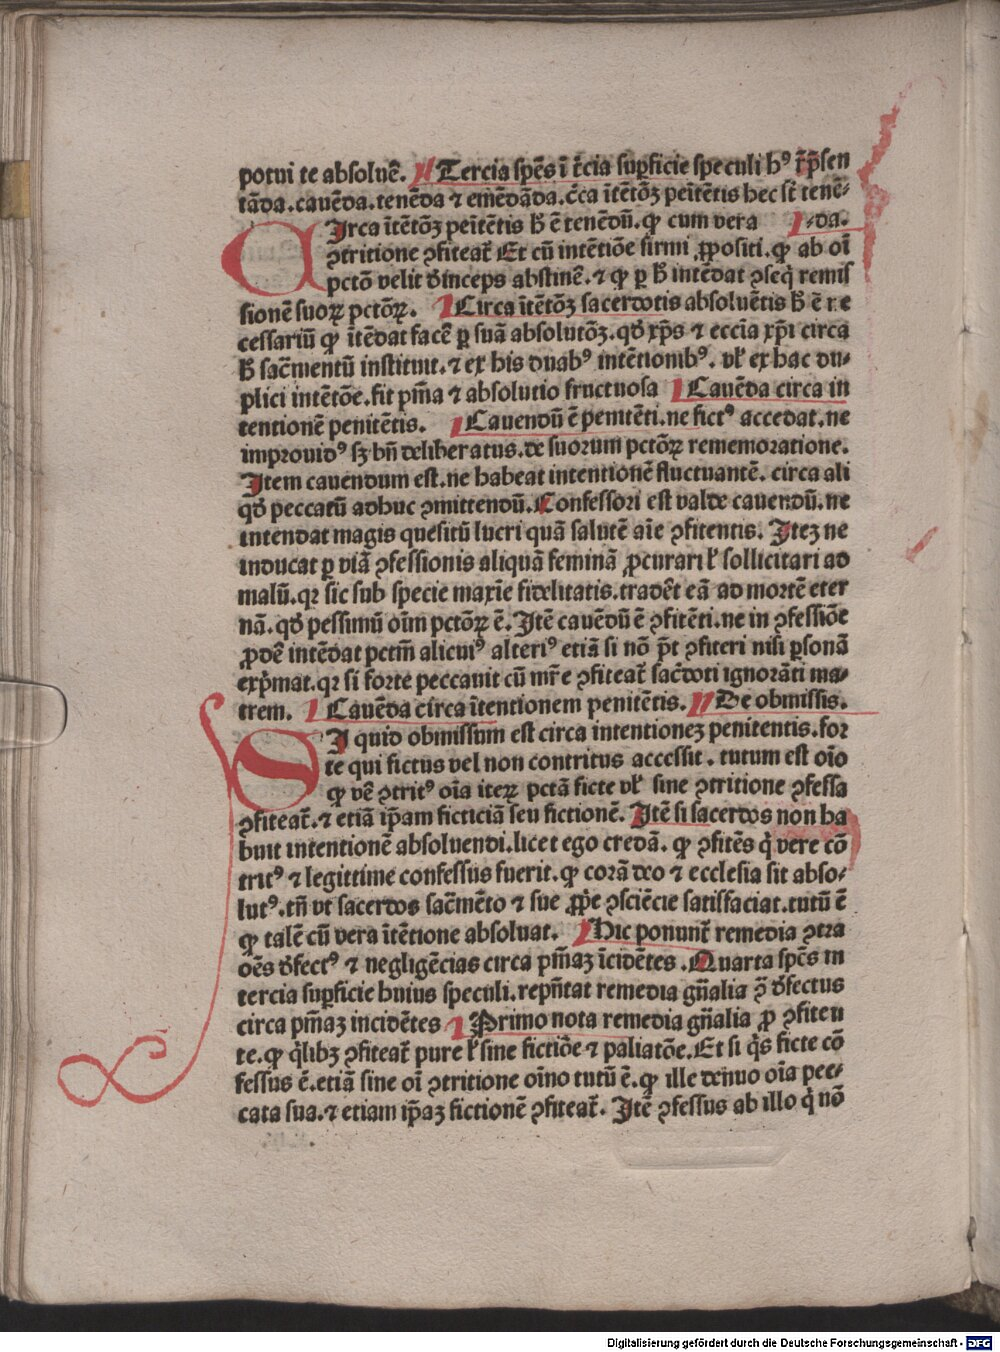 potui te absoluẽ. Tercia spẽs ĩ t̃cia suꝑficie speculi hꝰ r̃p̃sen
tãda.cauẽda.tenẽda ⁊ emẽdãda.c̃ca ĩtẽtõꝫ peñitẽtis hec st̃ tenẽ-
CIrca ĩtẽtõꝫ peñitẽtis h̃ ẽ tenẽdũ.ꝙ cum vera -da.
ꝯtritione ꝯfiteat̃ Et cũ intẽtiõe firmi ꝓpositi.ꝙ ab oĩ
pctõ velit d̃inceps abstinẽ.⁊ ꝙ ꝑ h̃ intẽdat ꝯseq̃ remis
sionẽ suoꝝ pctõꝝ. Circa ĩtẽtõꝫ sacerdotis absoluẽtis h̃ ẽ ne
cessariũ ꝙ ĩtẽdat facẽ ꝑ suã absolutõꝫ.qd̃ xp̃s ⁊ eccĩa xp̃i circa
h̃ sac̃mentũ instituit.⁊ ex his duabꝰ intẽtionibꝰ. vł ex hac du-
plici intẽtõe.fit pm̃a ⁊ absolutio fructuosa Cauẽda circa in
tentionẽ penitẽtis. Cauendũ ẽ penitẽti.ne fictꝰ accedat.ne
improuidꝰ sꝫ bñ deliberatus.de suorum pctõꝝ rememoratione.
Item cauendum est.ne habeat intentionẽ fluctuantẽ. circa ali
qd̃ peccatũ adhuc ꝯmittendũ.Confessori est valde cauendũ.ne
intendat magis questũ lucri quã salutẽ aĩe ꝯfitentis. Iteꝫ ne
inducat ꝑ viã ꝯfessionis aliquã feminã ꝓcurari ł sollicitari ad
malũ.qꝛ sic sub specie maxĩe fidelitatis.tradẽt eã ad mortẽ eter
nã.qd̃ pessimũ oĩm pctõꝝ ẽ. Itẽ cauẽdũ ẽ ꝯfitẽti.ne in ꝯfessiõe
ꝓdẽ intẽdat pctm̃ alicuiꝰ alteriꝰ etiã si nõ p̃t ꝯfiteri nisi ꝑsonã
exp̃mat.qꝛ si forte peccauit cũ mr̃e ꝯfiteat̃ sac̃doti ignorãti ma-
trem. Cauẽda circa ĩtentionem penitẽtis. De obmissis.
SI quid obmissum est circa intentioneꝫ penitentis.for
te qui fictus vel non contritus accessit. tutum est oĩo
ꝙ vẽ ꝯtritꝰ oĩa iteꝝ pctã ficte vł sine ꝯtritione ꝯfessa
ꝯfiteat̃.⁊ etiã ip̃am ficticiã seu fictionẽ. Itẽ si sacerdos non ha
buit intentionẽ absoluendi.licet ego credã. ꝙ ꝯfitẽs q̃ vere cõ
tritꝰ ⁊ legittime confessus fuerit.ꝙ corã deo ⁊ ecclesia sit abso-
lutꝰ.tñ vt sacerdos sac̃mẽto ⁊ sue ꝓp̃e ꝯsciẽcie satisfaciat.tutũ ẽ
ꝙ talẽ cũ vera ĩtẽtione absoluat. Hic ponunt̃ remedia ꝯtra
oẽs d̃fectꝰ ⁊ negligẽcias circa pm̃aꝫ ĩcidẽtes.Quarta spẽs in
tercia suꝑficie huius speculi.repñtat remedia gñalia ꝯ̃ d̃fectus
circa pm̃aꝫ incidẽtes Primo nota remedia gñalia ꝓ ꝯfiten
te.ꝙ q̃libꝫ ꝯfiteat̃ pure ł sine fictiõe ⁊ paliatõe.Et si q̃s ficte cõ
fessus ẽ.etiã sine oĩ ꝯtritione oĩno tutũ ẽ.ꝙ ille denuo oĩa pec-
cata sua.⁊ etiam ip̃aꝫ fictionẽ ꝯfiteat̃. Itẽ ꝯfessus ab illo q̃ nõ
Digitalisierung gefördert durch die Deutsche Forschungsgemeinschaft - DFG